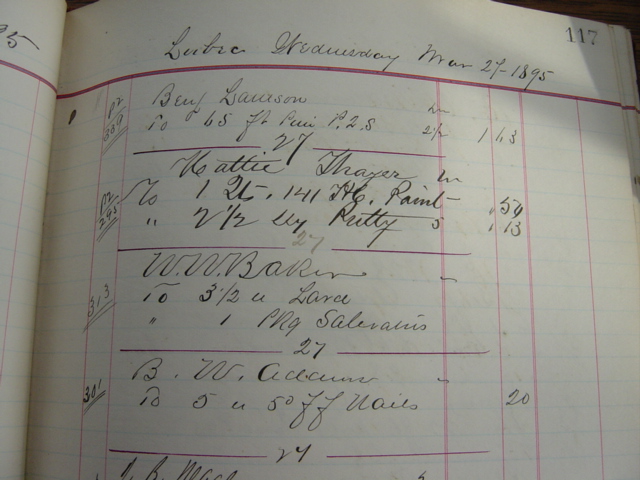 117
Lubec Wednesday Mar 27-1895
Benj Lamson
339 To 65 ft Pine P.2.S 2 1/2 1 63
27
Hattie Thayer
295 To 1 Qt. 141 Paint .54
" 2 1/2 Putty 5 .13
27
W.W. Baker
313 To 3 1/2 Lard
" 1 Pkg Saleratus
27
B. W. Adams
301 To 5 Nails 20
27